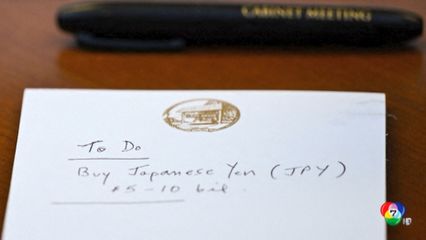 CABINET MEETING
To Do
Buy Japanese Yen (JPY)
$5-10 bil.
7 HD